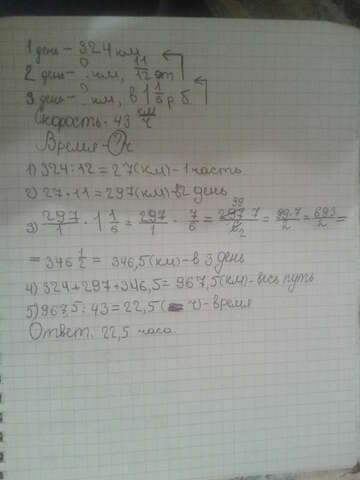 1 день - 324 км
2 день - ? км, 11/12 от
3 день - ? км, в 1 1/6 р б.
Скорость - 43 км/ч
Время - ? ч
1) 324:12=27(км)-1 часть
2) 27·11=297(км)-в 2 день
3) 297/1 · 1 1/6 = 297/1 · 7/6 = 297·7/6 = 99·7/2 = 693/2 =
= 346 1/2 = 346,5(км)-в 3 день
4) 324+297+346,5=967,5(км)-весь путь
5) 967,5:43=22,5(ч)-время
Ответ: 22,5 часа